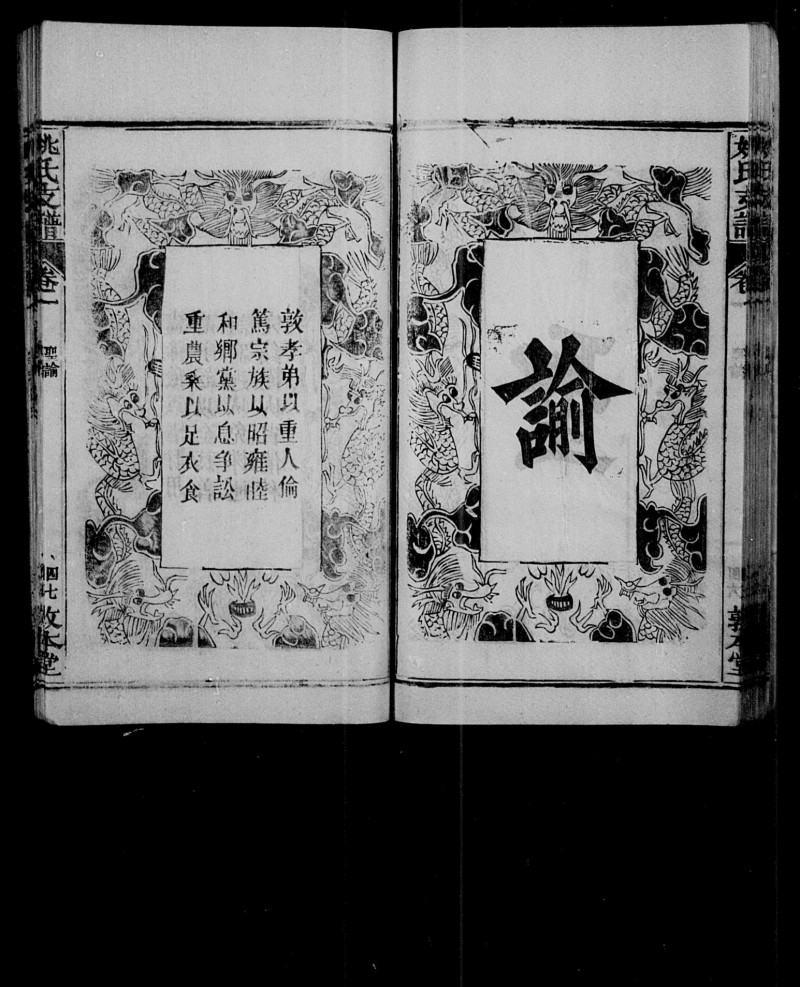 諭
敦孝弟以重人倫
篤宗族以昭雍睦
和鄉黨以息爭訟
重農桑以足衣食
姚氏支譜
卷一
聖諭
四七
敦本堂
姚氏支譜
卷一
敦本堂